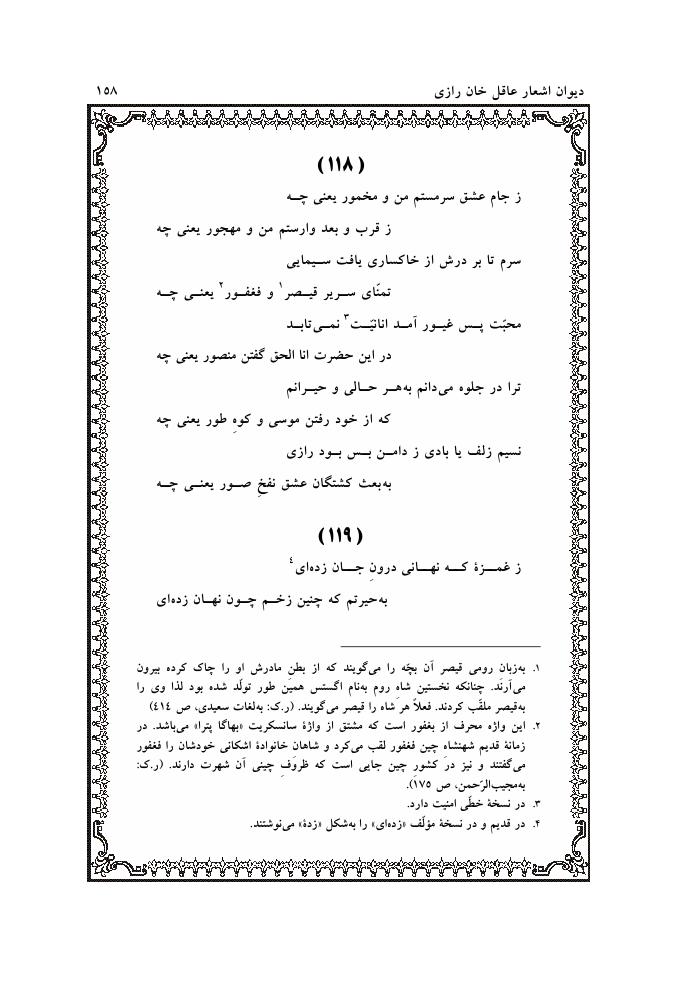 دیوان اشعار عاقل خان رازی ۱۵۸
(۱۱۸)
ز جام عشق سرمستم من و مخمور یعنی چـه
ز قرب و بعد وارستم من و مهجور یعنی چه
سرم تا بر درش از خاکساری یافت سـیمایی
تمنّای سـریر قیـصر۱ و فغفـور۲ یعنـی چـه
محبّت پـس غیـور آمـد انانیّـت۳ نمـی‌تابـد
در این حضرت انا الحق گفتن منصور یعنی چه
ترا در جلوه می‌دانم به‌هـر حـالی و حیـرانم
که از خود رفتن موسی و کوهِ طور یعنی چه
نسیم زلف یا بادی ز دامـن بـس بـود رازی
به‌بعث کشتگان عشق نفخِ صـور یعنـی چـه
(۱۱۹)
ز غمـزۀ کـه نهـانی درونِ جـان زده‌ای۴
به‌حیرتم که چنین زخـم چـون نهـان زده‌ای
۱. به‌زبان رومی قیصر آن بچّه را می‌گویند که از بطنِ مادرش او را چاک کرده بیرون
می‌آرند. چنانکه نخستین شاهِ روم به‌نام اگستس همین طور تولّد شده بود لذا وی را
به‌قیصر ملقّب کردند. فعلاً هر شاه را قیصر می‌گویند. (ر.ک: به‌لغات سعیدی، ص ۴۱۴)
۲. این واژه محرف از بغفور است که مشتق از واژۀ سانسکریت «بهاگا پترا» می‌باشد. در
زمانۀ قدیم شهنشاهِ چین فغفور لقب می‌کرد و شاهان خانوادۀ اشکانی خودشان را فغفور
می‌گفتند و نیز در کشورِ چین جایی است که ظروفِ چینی آن شهرت دارند. (ر.ک:
به‌مجیب‌الرّحمن، ص ۱۷۵).
۳. در نسخۀ خطّی امنیت دارد.
۴. در قدیم و در نسخۀ مؤلّف «زده‌ای» را به‌شکل «زدۀ» می‌نوشتند.